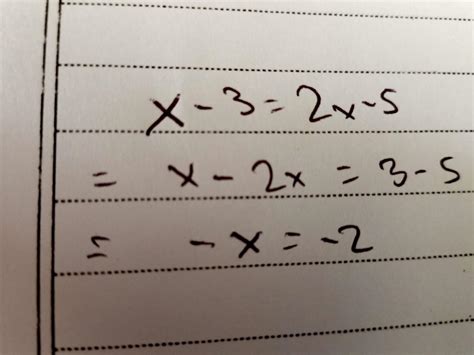 x - 3 = 2x - 5
= x - 2x = 3 - 5
= -x = -2